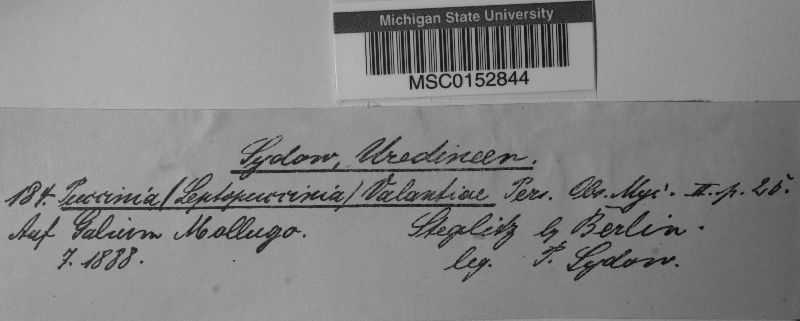 Michigan State University
MSC0152844
Sydow, Uredineen.
184. Puccinia (Leptopuccinia) Valantiae Pers. Obs. Myc. II. p. 25.
Auf Galium Mollugo. Steglitz b Berlin.
7. 1888. leg. P. Sydow.